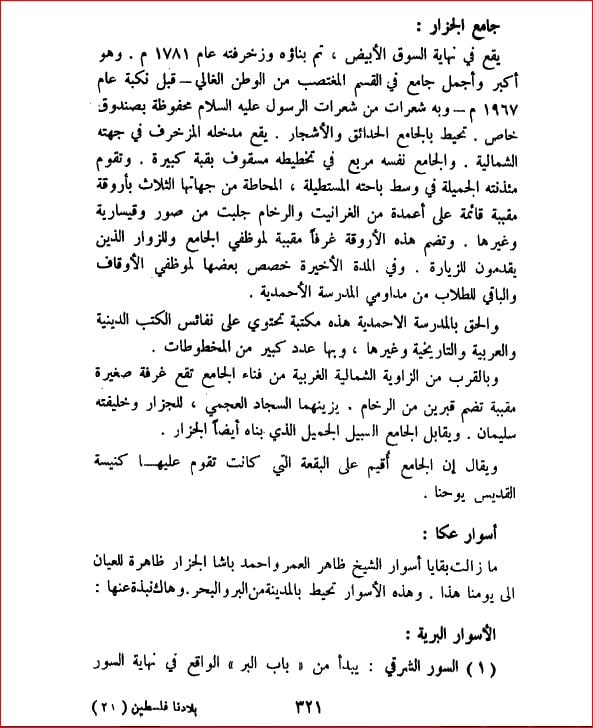 جامع الجزار :
يقع في نهاية السوق الأبيض ، تم بناؤه وزخرفته عام ١٧٨١ م . وهو
أكبر وأجمل جامع في القسم المغتصب من الوطن الغالي – قبل نكبة عام
١٩٦٧ م – وبه شعرات من شعرات الرسول عليه السلام محفوظة بصندوق
خاص . تحيط بالجامع الحدائق والأشجار . يقع مدخله المزخرف في جهته
الشمالية . والجامع نفسه مربع في تخطيطه مسقوف بقبة كبيرة . وتقوم
مئذنته الجميلة في وسط باحته المستطيلة ، المحاطة من جهاتها الثلاث بأروقة
مقببة قائمة على أعمدة من الغرانيت والرخام جلبت من صور وقيسارية
وغيرها . وتضم هذه الأروقة غرفاً مقببة لموظفي الجامع وللزوار الذين
يقدمون للزيارة . وفي المدة الأخيرة خصص بعضها لموظفي الأوقاف
والباقي للطلاب من مداومي المدرسة الأحمدية .
والحق بالمدرسة الاحمدية هذه مكتبة تحتوي على نفائس الكتب الدينية
والعربية والتاريخية وغيرها ، وبها عدد كبير من المخطوطات .
وبالقرب من الزاوية الشمالية الغربية من فناء الجامع تقع غرفة صغيرة
مقببة تضم قبرين من الرخام . يزينهما السجاد العجمي ، للجزار وخليفته
سليمان . ويقابل الجامع السبيل الجميل الذي بناه أيضاً الجزار .
ويقال إن الجامع أُقيم على البقعة التي كانت تقوم عليهـا كنيسة
القديس يوحنا .
أسوار عكا :
ما زالت بقايا أسوار الشيخ ظاهر العمر واحمد باشا الجزار ظاهرة للعيان
الى يومنا هذا . وهذه الأسوار تحيط بالمدينة من البر والبحر . وهاك نبذة عنها :
الأسوار البرية :
( ١ ) السور الشرقي : يبدأ من « باب البر » الواقع في نهاية السور
٣٢١
بلادنا فلسطين ( ٢١ )